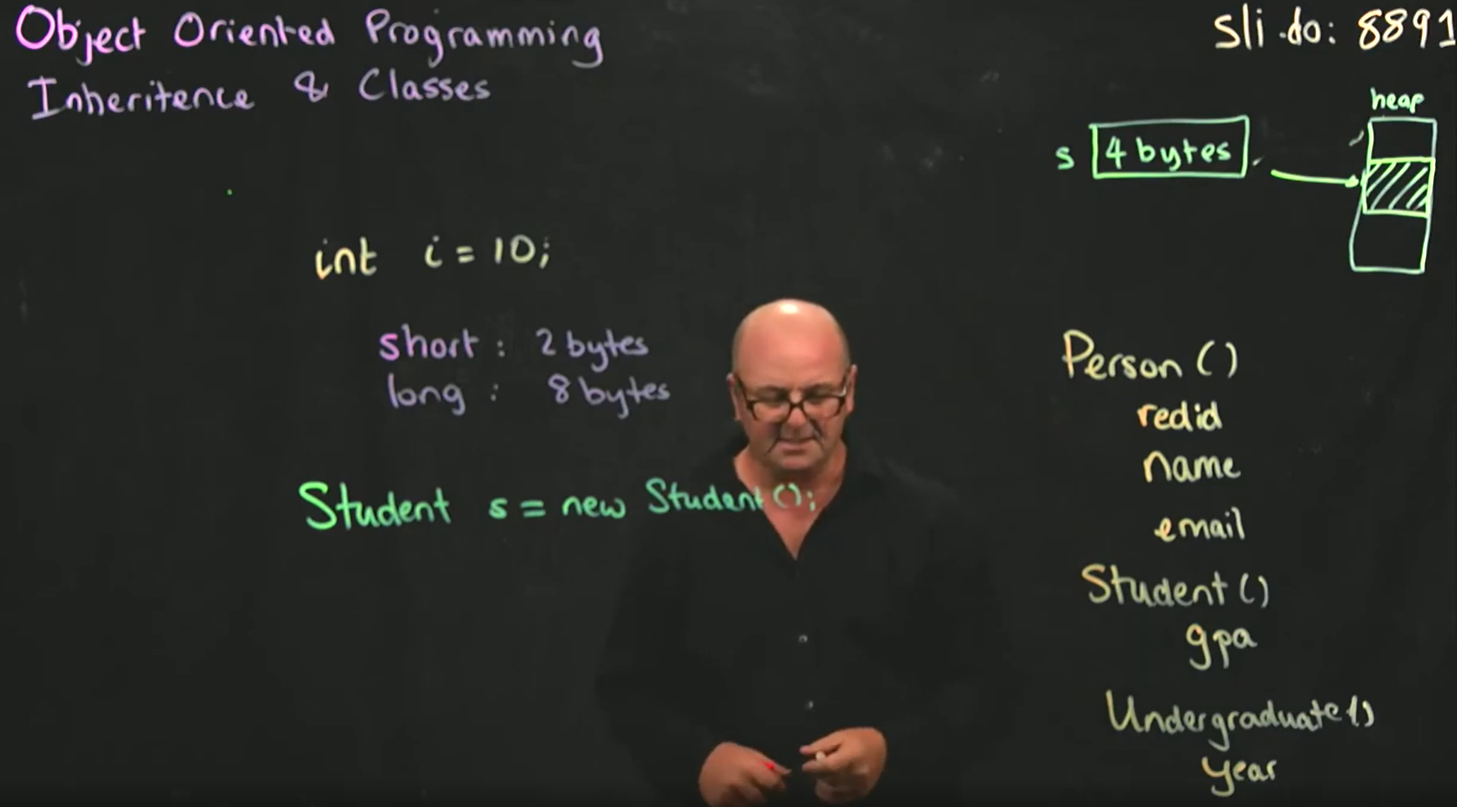 Object Oriented Programming
Inheritence & Classes
sli.do: 8891
heap
s 4 bytes
int i = 10;
short: 2 bytes
long: 8 bytes
Student s = new Student();
Person()
redid
name
email
Student()
gpa
Undergraduate()
year